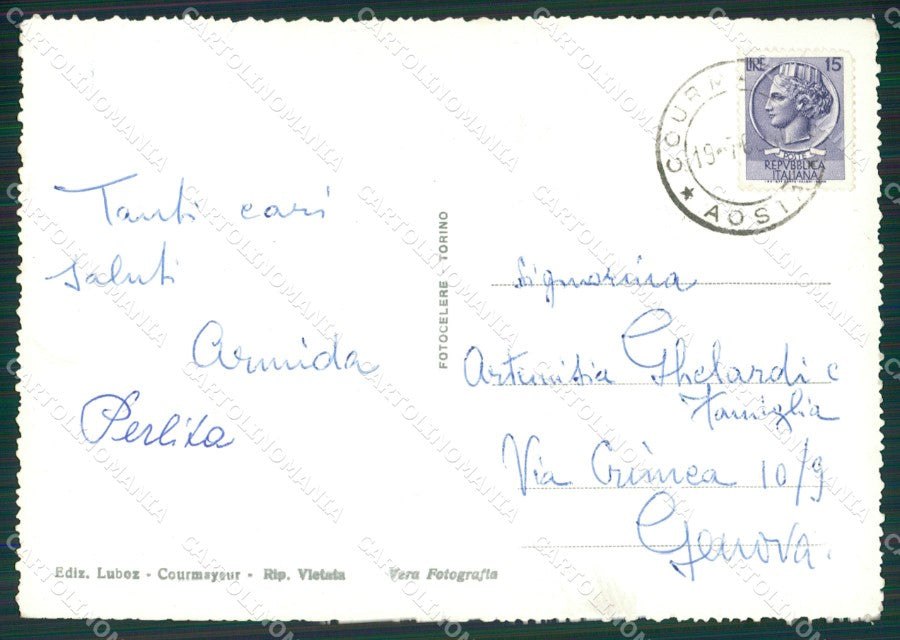 Tanti cari
saluti
Armida
Perlita
FOTOCELERE - TORINO
Ediz. Luboz - Courmayeur - Rip. Vietata Vera Fotografia
LIRE 15
POSTE
REPVBBLICA
ITALIANA
COURMA
19-7
AOSTA
Signorina
Artemisia Ghelardi e
Famiglia
Via Crimea 10/9
Genova.
CARTOLINOMANIA